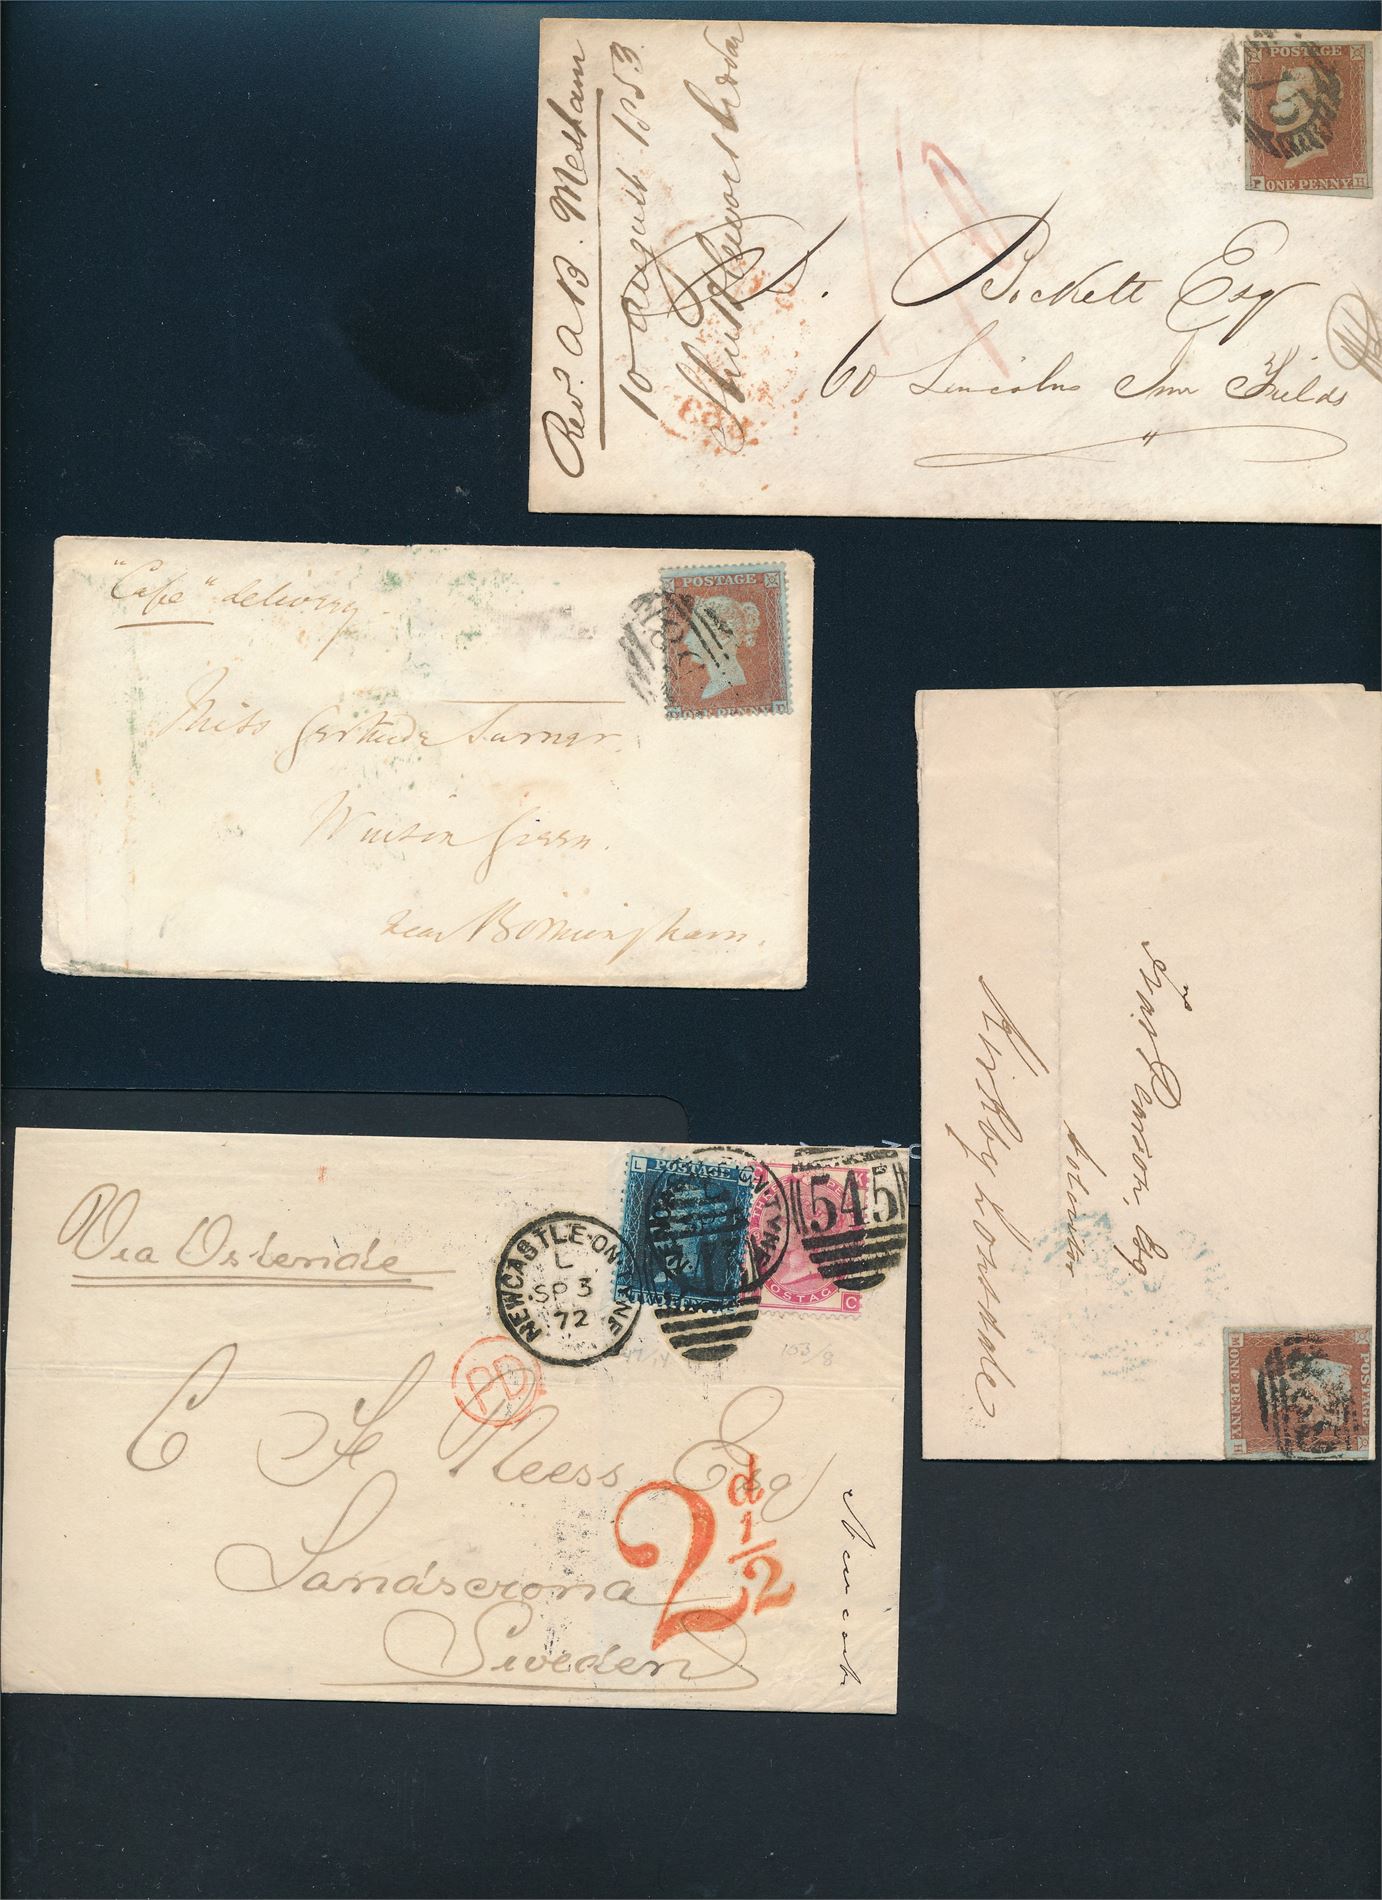 Revd A B. Mesham
10 August 1853
POSTAGE
P ONE PENNY H
D. Bickett Esq
60 Lincolns Inn Fields
"Cape" delivery
POSTAGE
ONE PENNY
Miss Gertrude Turner
Winson Green.
near Birmingham.
Pearson, Esq
Solicitor
Kirkby Lonsdale
POSTAGE
M ONE PENNY H
Via Ostende
L POSTAGE
NEWCASTLE-ON-TYNE
L
SP 3
72
545
C
PD
47/14
153/8
C F Neess Esq
2 d 1/2
Landscrona
Sweden